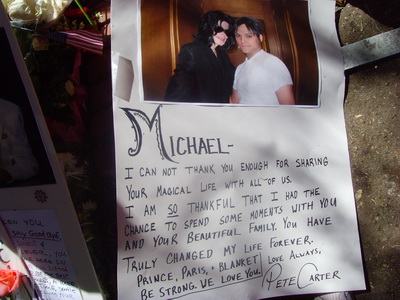 MICHAEL-
I CAN NOT THANK YOU ENOUGH FOR SHARING
YOUR MAGICAL LIFE WITH ALL OF US.
I AM SO THANKFUL THAT I HAD THE
CHANCE TO SPEND SOME MOMENTS WITH YOU
AND YOUR BEAUTIFUL FAMILY. YOU HAVE
TRULY CHANGED MY LIFE FOREVER.
PRINCE, PARIS, + BLANKET
BE STRONG. WE LOVE YOU.
LOVE ALWAYS,
PETE CARTER
YOU,
Say GoodBye